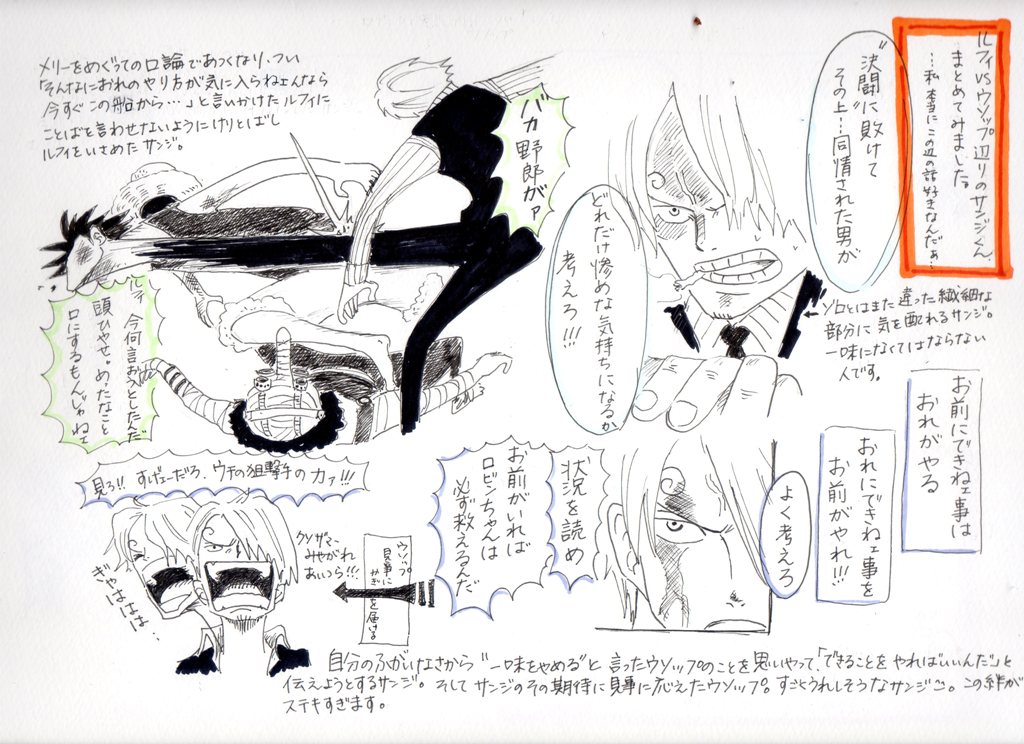 ルフィVSウソップ辺りのサンジくん、
まとめてみました。
…私、本当にこの辺の話好きなんだぁ~
メリーをめぐっての口論であつくなり、つい
「そんなにおれのやり方が気に入らねェんなら
今すぐこの船から…」と言いかけたルフィに
ことばを言わせないようにけりとばし
ルフィをいさめたサンジ。
バカ野郎がァ
ルフィ、今何言おうとしたんだ
頭ひやせ。めったなこと
口にするもんじゃねェ
"決闘"に敗けて
その上…同情された男が
どれだけ惨めな気持ちになるか
考えろ!!!
ゾロとはまた違った繊細な
部分に気を配れるサンジ。
一味になくてはならない
人です。
お前にできねェ事は
おれがやる
おれにできねェ事を
お前がやれ!!!
よく考えろ
状況を読め
お前がいれば
ロビンちゃんは
必ず救えるんだ
見ろ!! すげェーだろ、ウチの狙撃手の力ァ!!!
クソザマー
みやがれ
あいつら!!!
ぎゃはははは…
ウソップ
見事に
かぎを届ける
自分のふがいなさから"一味をやめる"と言ったウソップのことを思いやって、「できることをやればいいんだ」と
伝えようとするサンジ。そしてサンジのその期待に見事に応えたウソップ。すごくうれしそうなサンジ。この絆が
ステキすぎます。